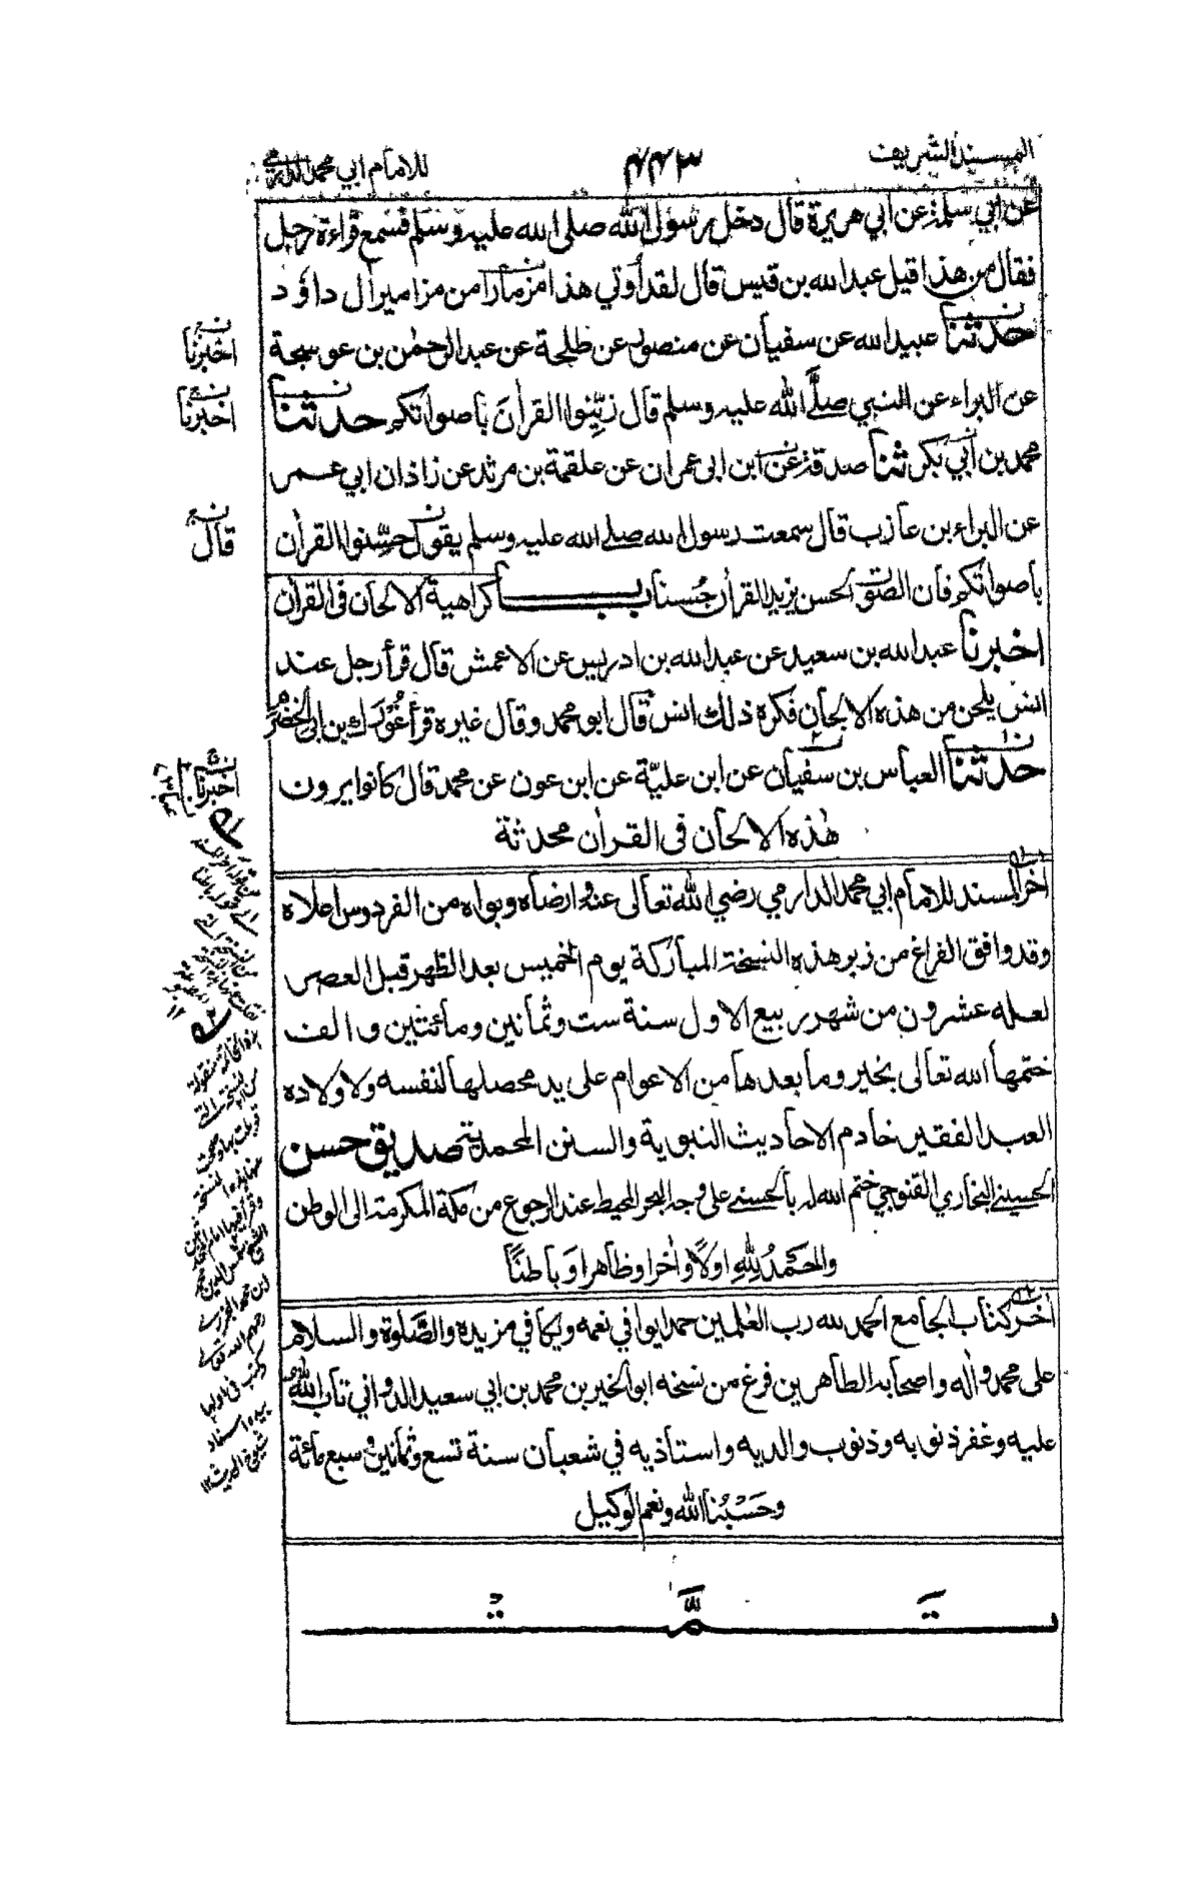 المسند الشريف
٤٤٣
للامام ابي محمد الدارمي
عن ابي سلمة عن ابي هريرة قال دخل رسول الله صلى الله عليه وسلم فسمع قراءة رجل
فقال من هذا قيل عبد الله بن قيس قال لقد أوتي هذا مزمارا من مزامير ال داؤد
حدثنا عبيد الله عن سفيان عن منصور عن طلحة عن عبد الرحمٰن بن عوسجة
عن البراء عن النبي صلَّى الله عليه وسلم قال زَيِّنوا القرأنَ بأصواتكم حدثنا
محمد بن أبي بكر ثنا صدقة عن ابن ابى عمران عن علقمة بن مرثد عن زاذان ابي عمر
عن البراء بن عازب قال سمعت رسول الله صلى الله عليه وسلم يقول حسِّنوا القرأن
بأصواتكم فأن الصوت الحسن يزيد القرأن حُسنا باب كراهية الالحان فى القرأن
اخبرنا عبد الله بن سعيد عن عبد الله بن ادريس عن الاعمش قال قرأ رجل عند
انس يلحن من هذه الالحان فكره ذلك انس قال ابو محمد وقال غيره قرأ غُورَك بن ابى الخضرم
حدثنا العباس بن سفيان عن ابن عليّة عن ابن عون عن محمد قال كانوا يرون
هٰذه الالحان فى القران محدثة
أخر المسند للامام ابي محمد الدارمي رضي الله تعالى عنه وارضاه وبواه من الفردوس اعلاه
وقد وافق الفراغ من زبر هذه النسخة المباركة يوم الخميس بعد الظهر قبل العصر
لعله عشرون من شهر ربيع الاول سنة ست وثمانين ومائتين والف
ختمها الله تعالى بخير وما بعدها من الاعوام على يد محصلها لنفسه ولاولاده
العبد الفقير خادم الاحاديث النبوية والسنن المحمدية صديق حسن
الحسيني البخاري القنوجي ختم الله له بالحسنى على وجه البحر المحيط عند الرجوع من مكة المكرمة الى الوطن
والحَمدُ لِلّٰهِ اولًا وأخرا وظاهرا وَباطنًا
أخر كتاب الجامع الحمد لله رب العٰلمين حمدا يوافي نعمه ويكافي مزيده والصَّلوة والسلام
على محمد واٰله واصحابه الطاهرين فرغ من نسخه ابو الخير بن محمد بن ابي سعيد الدواني تاب الله
عليه وغفر ذنوبه وذنوب والديه واستاذيه في شعبان سنة تسع وثمانين وسبع مائة
وحَسْبُنا الله ونعم الوكيل
تَمَّت
اخبرنا
اخبرنا
قال
اخبرنا
هذه الخاتمة منقولة
من النسخة التي
رحمه الله تعالى